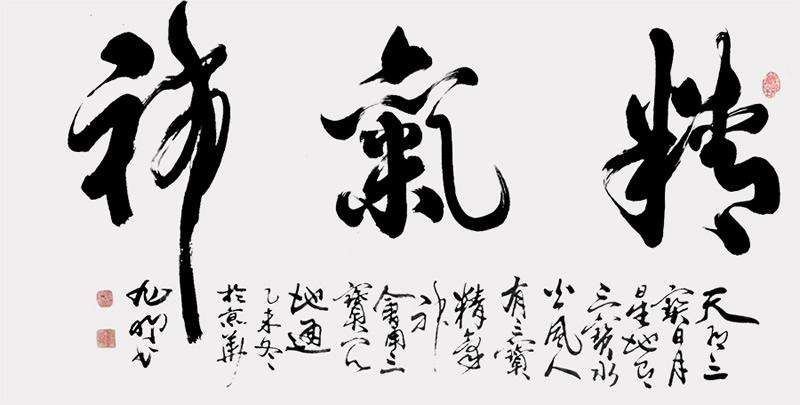 精氣神
天有三
寶日月
星地有
三寶水
火風人
有三寶
精氣
神
會用三
寶天
地通
乙未冬
於京華